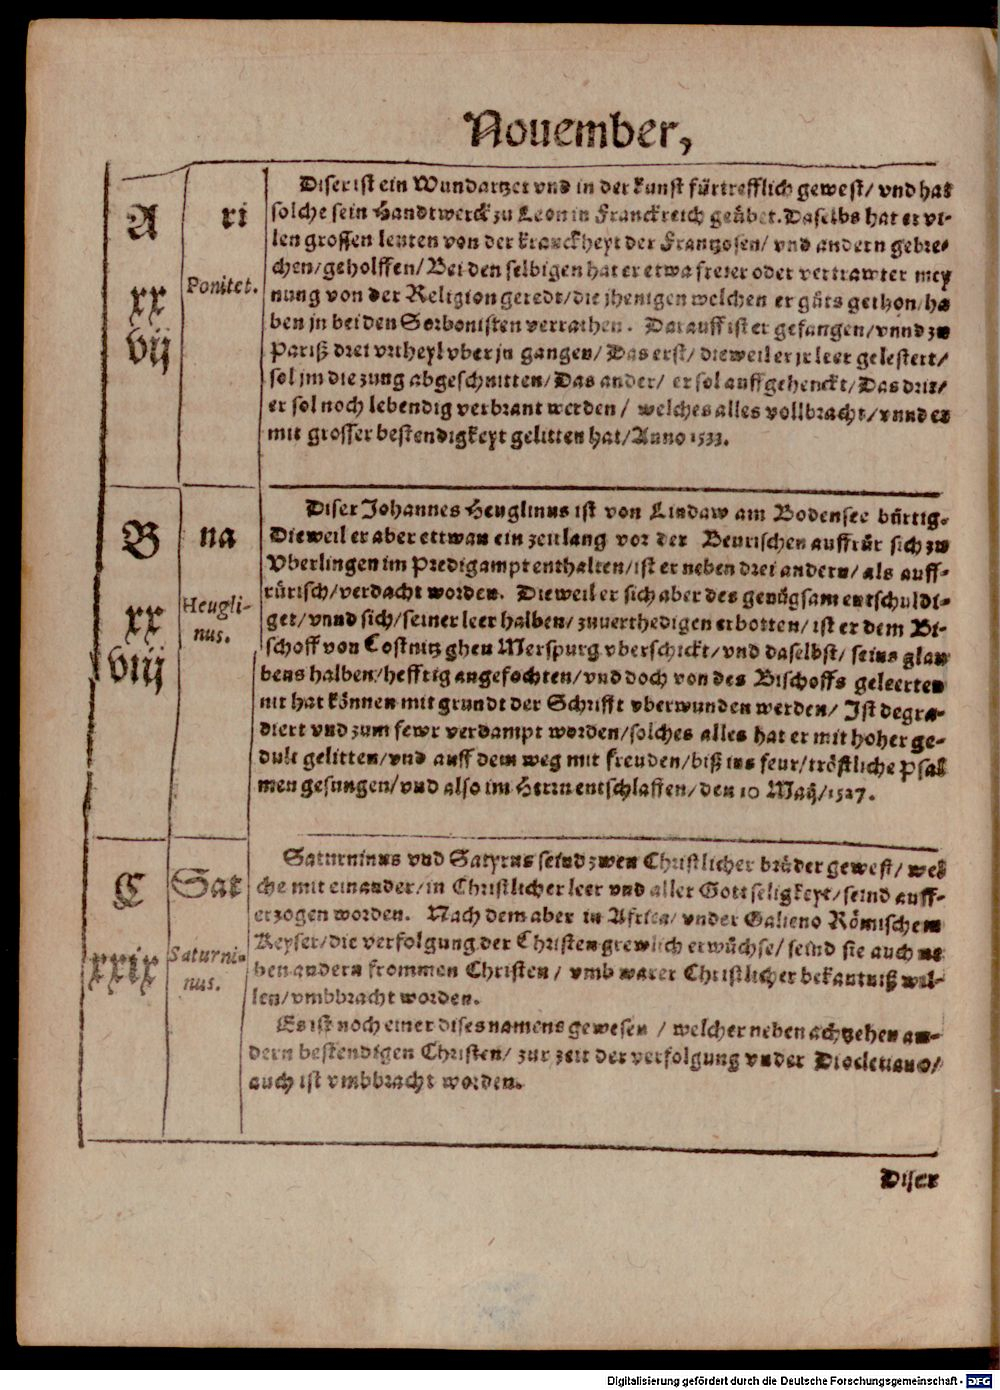 Nouember,
A
ri
xx
vij
Ponitet.
Diser ist ein Wundartzet vnd in der kunst fürtrefflich gewest/ vnd hat
solche sein Handtwerck zu Leon in Franckreich geübet. Daselbs hat er vi-
len grossen leuten von der kranckheyt der Frantzosen/ vnd andern gebre-
chen/geholffen/Bei den selbigen hat er etwa freier oder vertrawter mey
nung von der Religion geredt/die jhenigen welchen er gůts gethon/ha
ben jn bei den Sorbonisten verrathen. Darauff ist er gefangen/vnnd zu
Pariß drei vrtheyl vber jn gangen/Das erst/ dieweil er jr leer gelestert/
sol jm die zung abgeschnitten/Das ander/ er sol auffgehenckt/Das drit/
er sol noch lebendig verbrant werden/ welches alles vollbracht/vnnd er
mit grosser bestendigkeyt gelitten hat/Anno 1533.
B
na
xx
viij
Heugli-
nus.
Diser Johannes Heuglinus ist von Lindaw am Bodensee bürtig.
Dieweil er aber ettwan ein zeitlang vor der Beurischen auffrůr sich zu
Vberlingen im Predigampt enthalten/ist er neben drei andern/ als auff-
rürisch/verdacht worden. Dieweil er sich aber des genůgsam entschuldi-
get/vnnd sich/seiner leer halben/zuuerthedigen erbotten/ist er dem Bi-
schoff von Costnitz ghen Merspurg vberschickt/vnd daselbst/ seins glau
bens halben/hefftig angefochten/vnd doch von des Bischoffs geleerten
nit hat können mit grundt der Schrifft vberwunden werden/ Ist degra-
diert vnd zum fewr verdampt worden/solches alles hat er mit hoher ge-
dult gelitten/vnd auff dem weg mit freuden/biß ins feur/tröstliche Psal
men gesungen/vnd also im Herrn entschlaffen/den 10 Maij/1527.
C
Sat
xxix
Saturni-
nus.
Saturninus vnd Satyrus seind zwen Christlicher brüder gewest/wel
che mit einander/in Christlicher leer vnd aller Gottseligkeyt/seind auff-
erzogen worden. Nach dem aber in Africa/vnder Galieno Römischem
Keyser/die verfolgung der Christen grewlich erwůchse/seind sie auch ne
ben andern frommen Christen/ vmb warer Christlicher bekantniß wil-
len/vmbbracht worden.
Es ist noch einer dises namens gewesen / welcher neben achtzehen an-
dern bestendigen Christen/ zur zeit der verfolgung vnder Diocletiano/
auch ist vmbbracht worden.
Diser
Digitalisierung gefördert durch die Deutsche Forschungsgemeinschaft - DFG